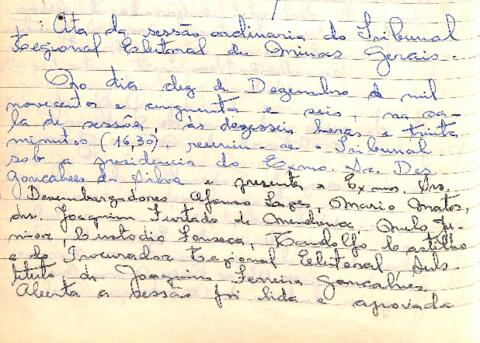 Ata da sessão ordinaria do Tribunal
Regional Eleitoral de Minas Gerais.
No dia dez de Dezembro de mil
novecentos e cinquenta e seis, na sa-
la de sessões, às dezesseis horas e trinta
minutos (16,30), reuniu-se o Tribunal
sob a presidencia do Exmo. Snr. Des.
Gonçalves da Silva e presentes os Exmos. Srs.
Desembargadores Afonso Lages, Mario Matos,
drs. Joaquim Furtado de Mendonça, Melo Ju-
nior, Custodio Fonseca, Randolfo
e do Procurador Regional Eleitoral, Subs-
tituto dr. Joaquim Ferreira Gonçalves.
Aberta a sessão foi lida e aprovada